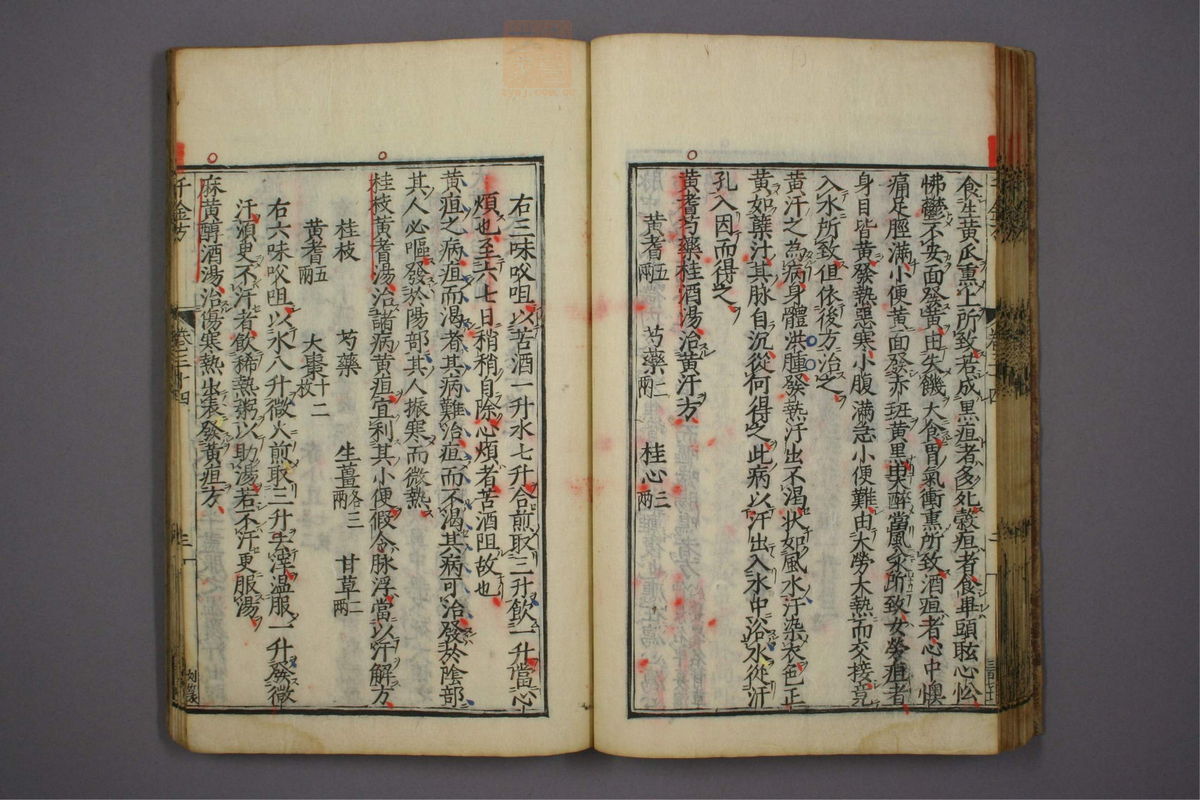 食生黃瓜熏上所致若成黑疸者多死穀疸者食畢頭眩心忪
怫鬱不安面發黃由失饑大食胃氣衝熏所致酒疸者心中懊
痛足脛滿小便黃面發赤斑黃黑由大醉當風入水所致女勞疸者
身目皆黃發熱惡寒小腹滿急小便難由大勞大熱而交接竟
入水所致但依後方治之
黃汗之為病身體洪腫發熱汗出不渴狀如風水汗染衣色正
黃如蘗汁其脉自沉從何得之此病以汗出入水中浴水從汗
孔入因而得之
黃耆芍藥桂酒湯治黃汗方
黃耆五兩 芍藥二兩 桂心三兩
右三味㕮咀以苦酒一升水七升合煎取三升飲一升當心
煩也至六七日稍稍自除心煩者苦酒阻故也
黃疸之病疸而渴者其病難治疸而不渴其病可治發於陰部
其人必嘔發於陽部其人振寒而微熱
桂枝黃耆湯治諸病黃疸宜利其小便假令脉浮當以汗解方
桂枝 芍藥 生薑各三兩 甘草二兩
黃耆五兩 大棗十二枚
右六味㕮咀以水八升微火煎取三升去滓温服一升發微
汗湏㬰不汗者飲稀熱粥以助湯若不汗更服湯
麻黃醇酒湯治傷寒熱出表發黃疸方
千金方
卷三十四